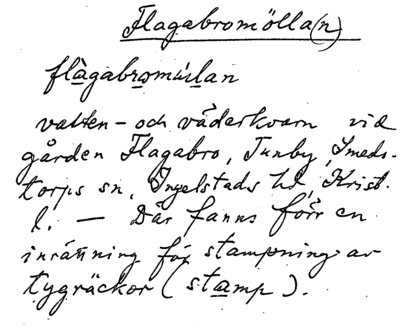 Flagabromölla(n)
flagabromúlan
vatten- och väderkvarn vid
gården Flagabro, Tunby, Smeds-
torps sn, Ingelstads hd, Krist.
l. — Där fanns förr en
inrättning för stampning av
tygräckor (stamp).